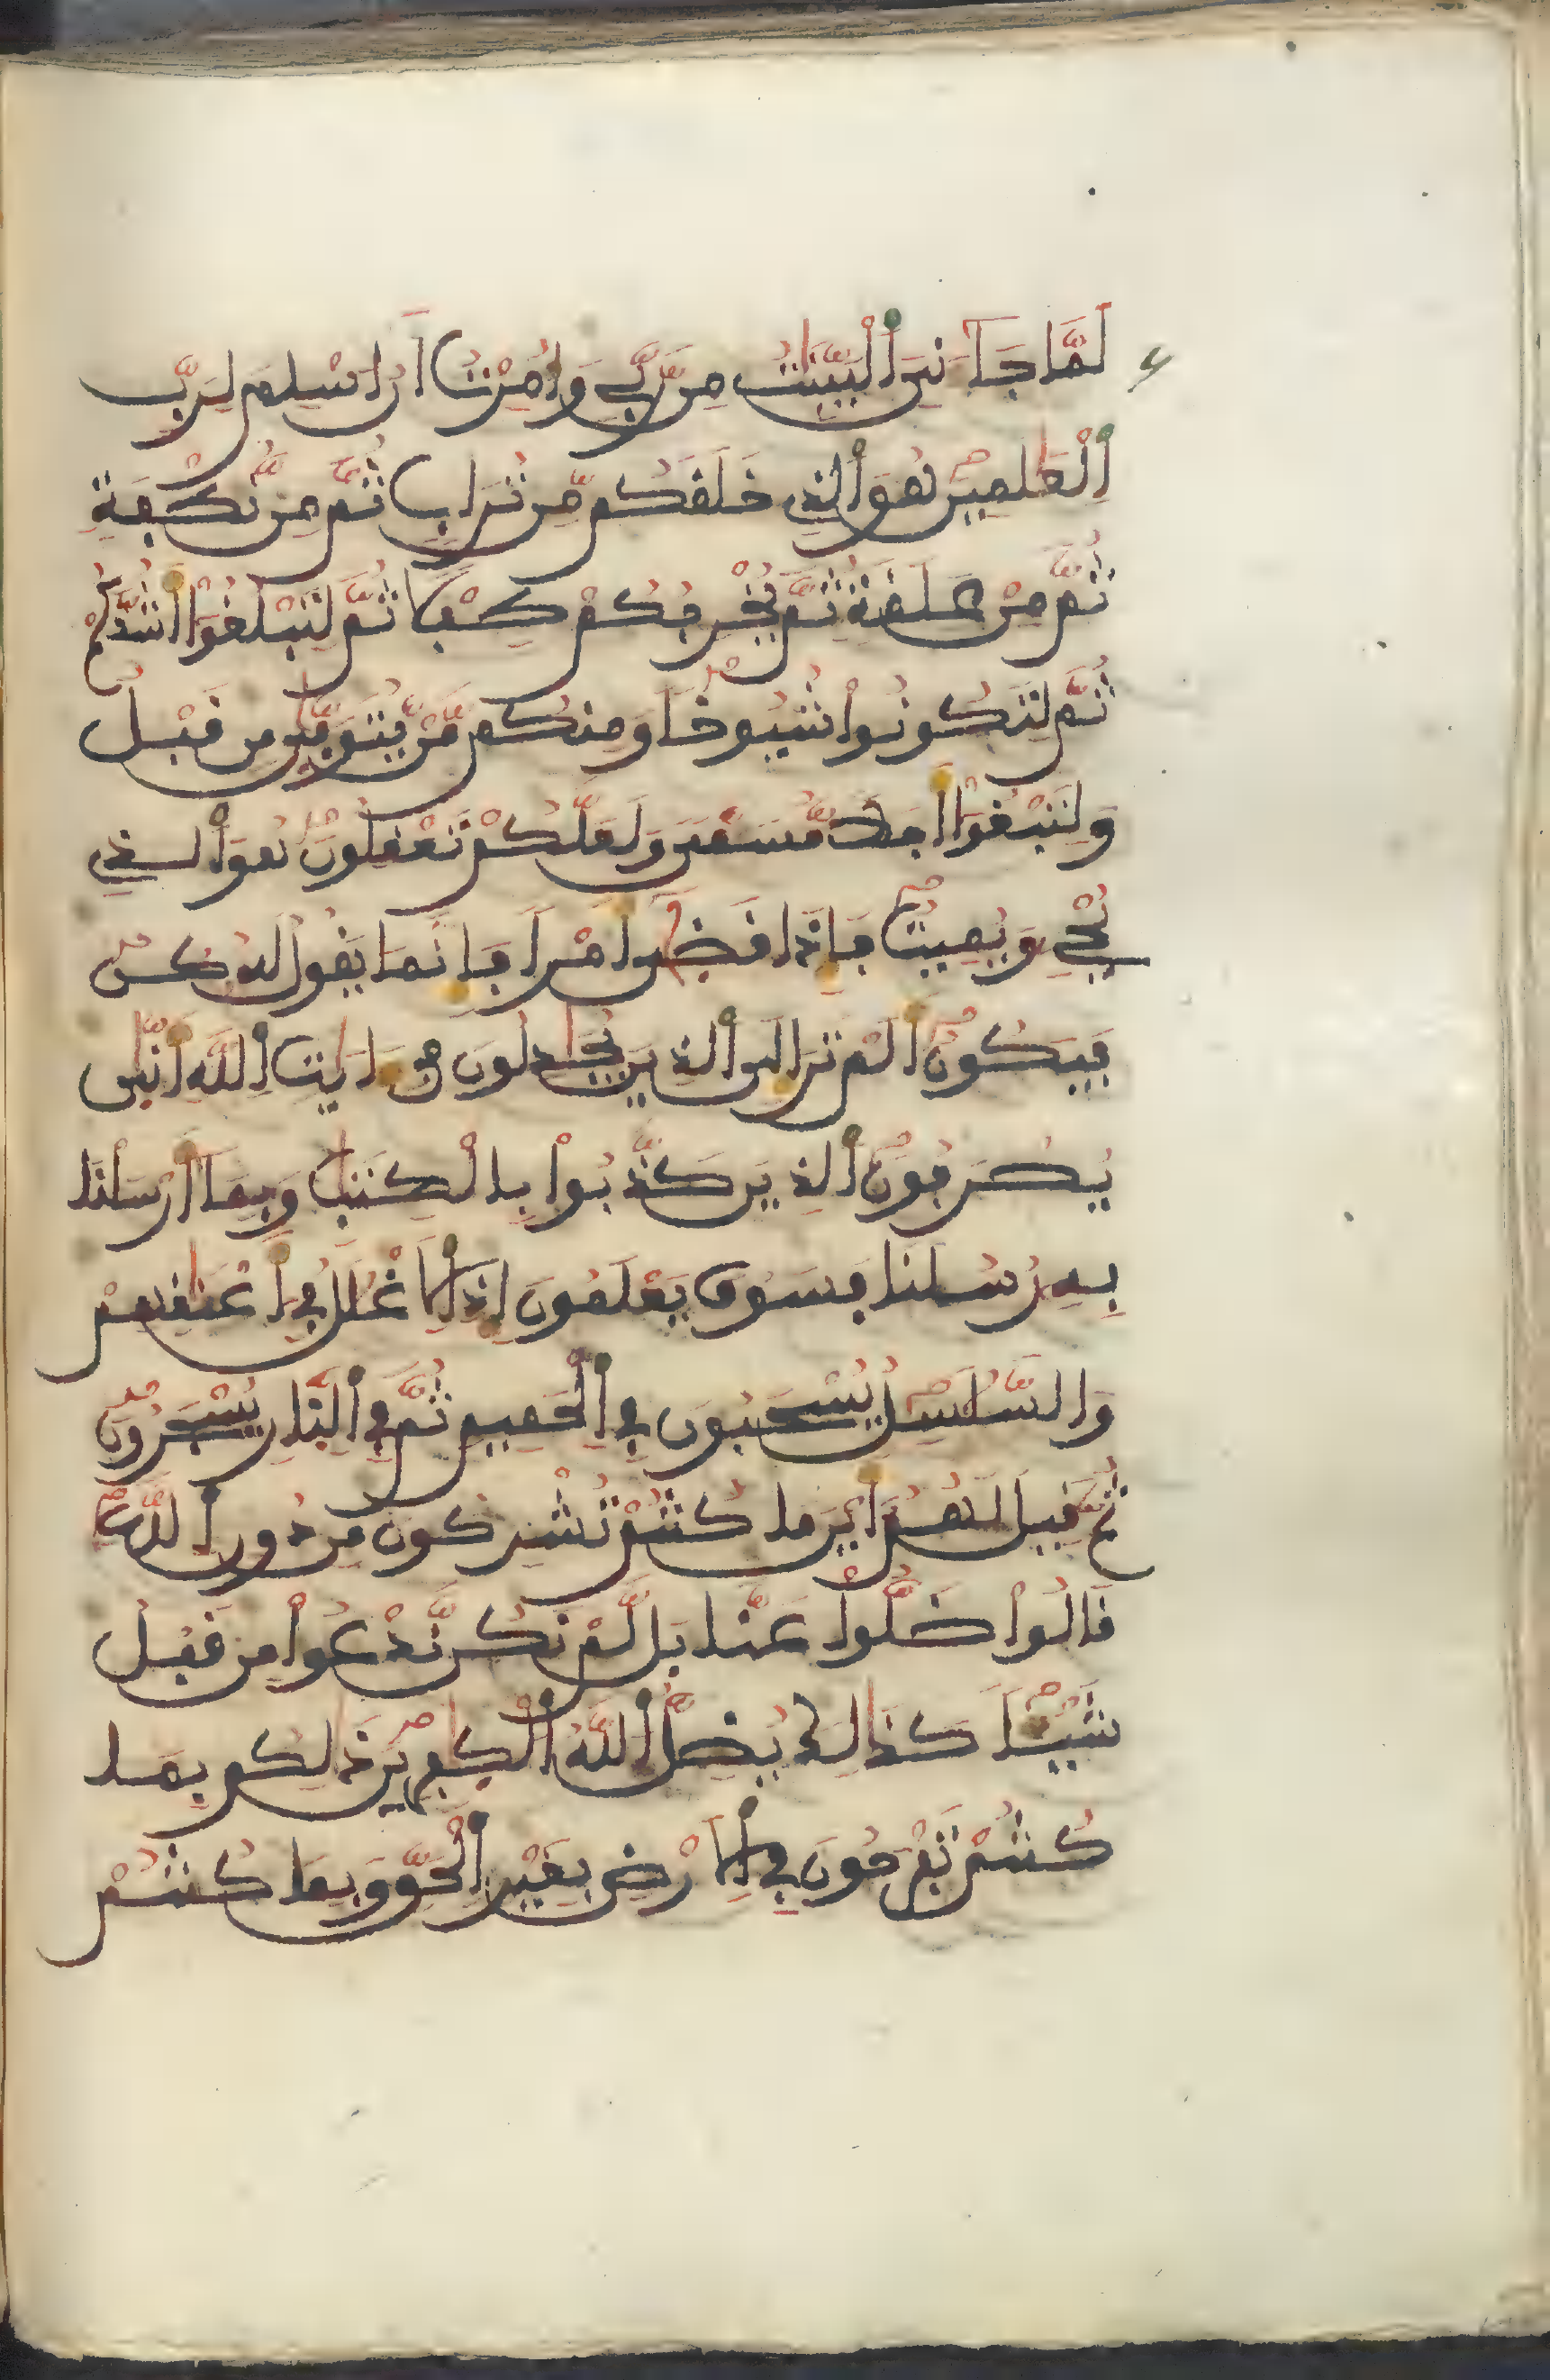 لَمَّا جَآءَنِيَ اَ۬لْبَيِّنَٰتُ مِن رَّبِّے وَأُمِرْتُ أَنُ ا۟سْلِمَ لِرَبِّ
اِ۬لْعَٰلَمِينَ هُوَ اَ۬لذِے خَلَقَكُم مِّن تُرَابٖ ثُمَّ مِن نُّطْفَةٖ
ثُمَّ مِنْ عَلَقَةٖ ثُمَّ يُخْرِجُكُمْ طِفْلاٗ ثُمَّ لِتَبْلُغُوٓاْ أَشُدَّكُمْ
ثُمَّ لِتَكُونُواْ شُيُوخاٗ وَمِنكُم مَّنْ يُّتَوَفّ۪يٰ مِن قَبْلُ
وَلِتَبْلُغُوٓاْ أَجَلاٗ مُّسَمّيٗ وَلَعَلَّكُمْ تَعْقِلُونَ هُوَ اَ۬لذِے
يُحْيِۦ وَيُمِيتُ فَإِذَا قَض۪يٰٓ أَمْراٗ فَإِنَّمَا يَقُولُ لَهُۥ كُن
فَيَكُونُ أَلَمْ تَرَ إِلَي اَ۬لذِينَ يُجَٰدِلُونَ فِےٓ ءَايَٰتِ اِ۬للَّهِ أَنّ۪يٰ
يُصْرَفُونَ اَ۬لذِينَ كَذَّبُواْ بِالْكِتَٰبِ وَبِمَآ أَرْسَلْنَا
بِهِۦ رُسُلَنَا فَسَوْفَ يَعْلَمُونَ إِذِ اِ۬لَاغْلَٰلُ فِےٓ أَعْنَٰقِهِمْ
وَالسَّلَٰسِلُ يُسْحَبُونَ فِے اِ۬لْحَمِيمِ ثُمَّ فِے اِ۬لنّ۪ارِ يُسْجَرُونَ
ثُمَّ قِيلَ لَهُمُۥٓ أَيْنَ مَا كُنتُمْ تُشْرِكُونَ مِن دُونِ اِ۬للَّهِ
قَالُواْ ضَلُّواْ عَنَّا بَل لَّمْ نَكُن نَّدْعُواْ مِن قَبْلُ
شَيْـٔاٗ كَذَٰلِكَ يُضِلُّ اُ۬للَّهُ اُ۬لْكٰ۪فِرِينَ ذَٰلِكُم بِمَا
كُنتُمْ تَفْرَحُونَ فِے اِ۬لَارْضِ بِغَيْرِ اِ۬لْحَقِّ وَبِمَا كُنتُمْ